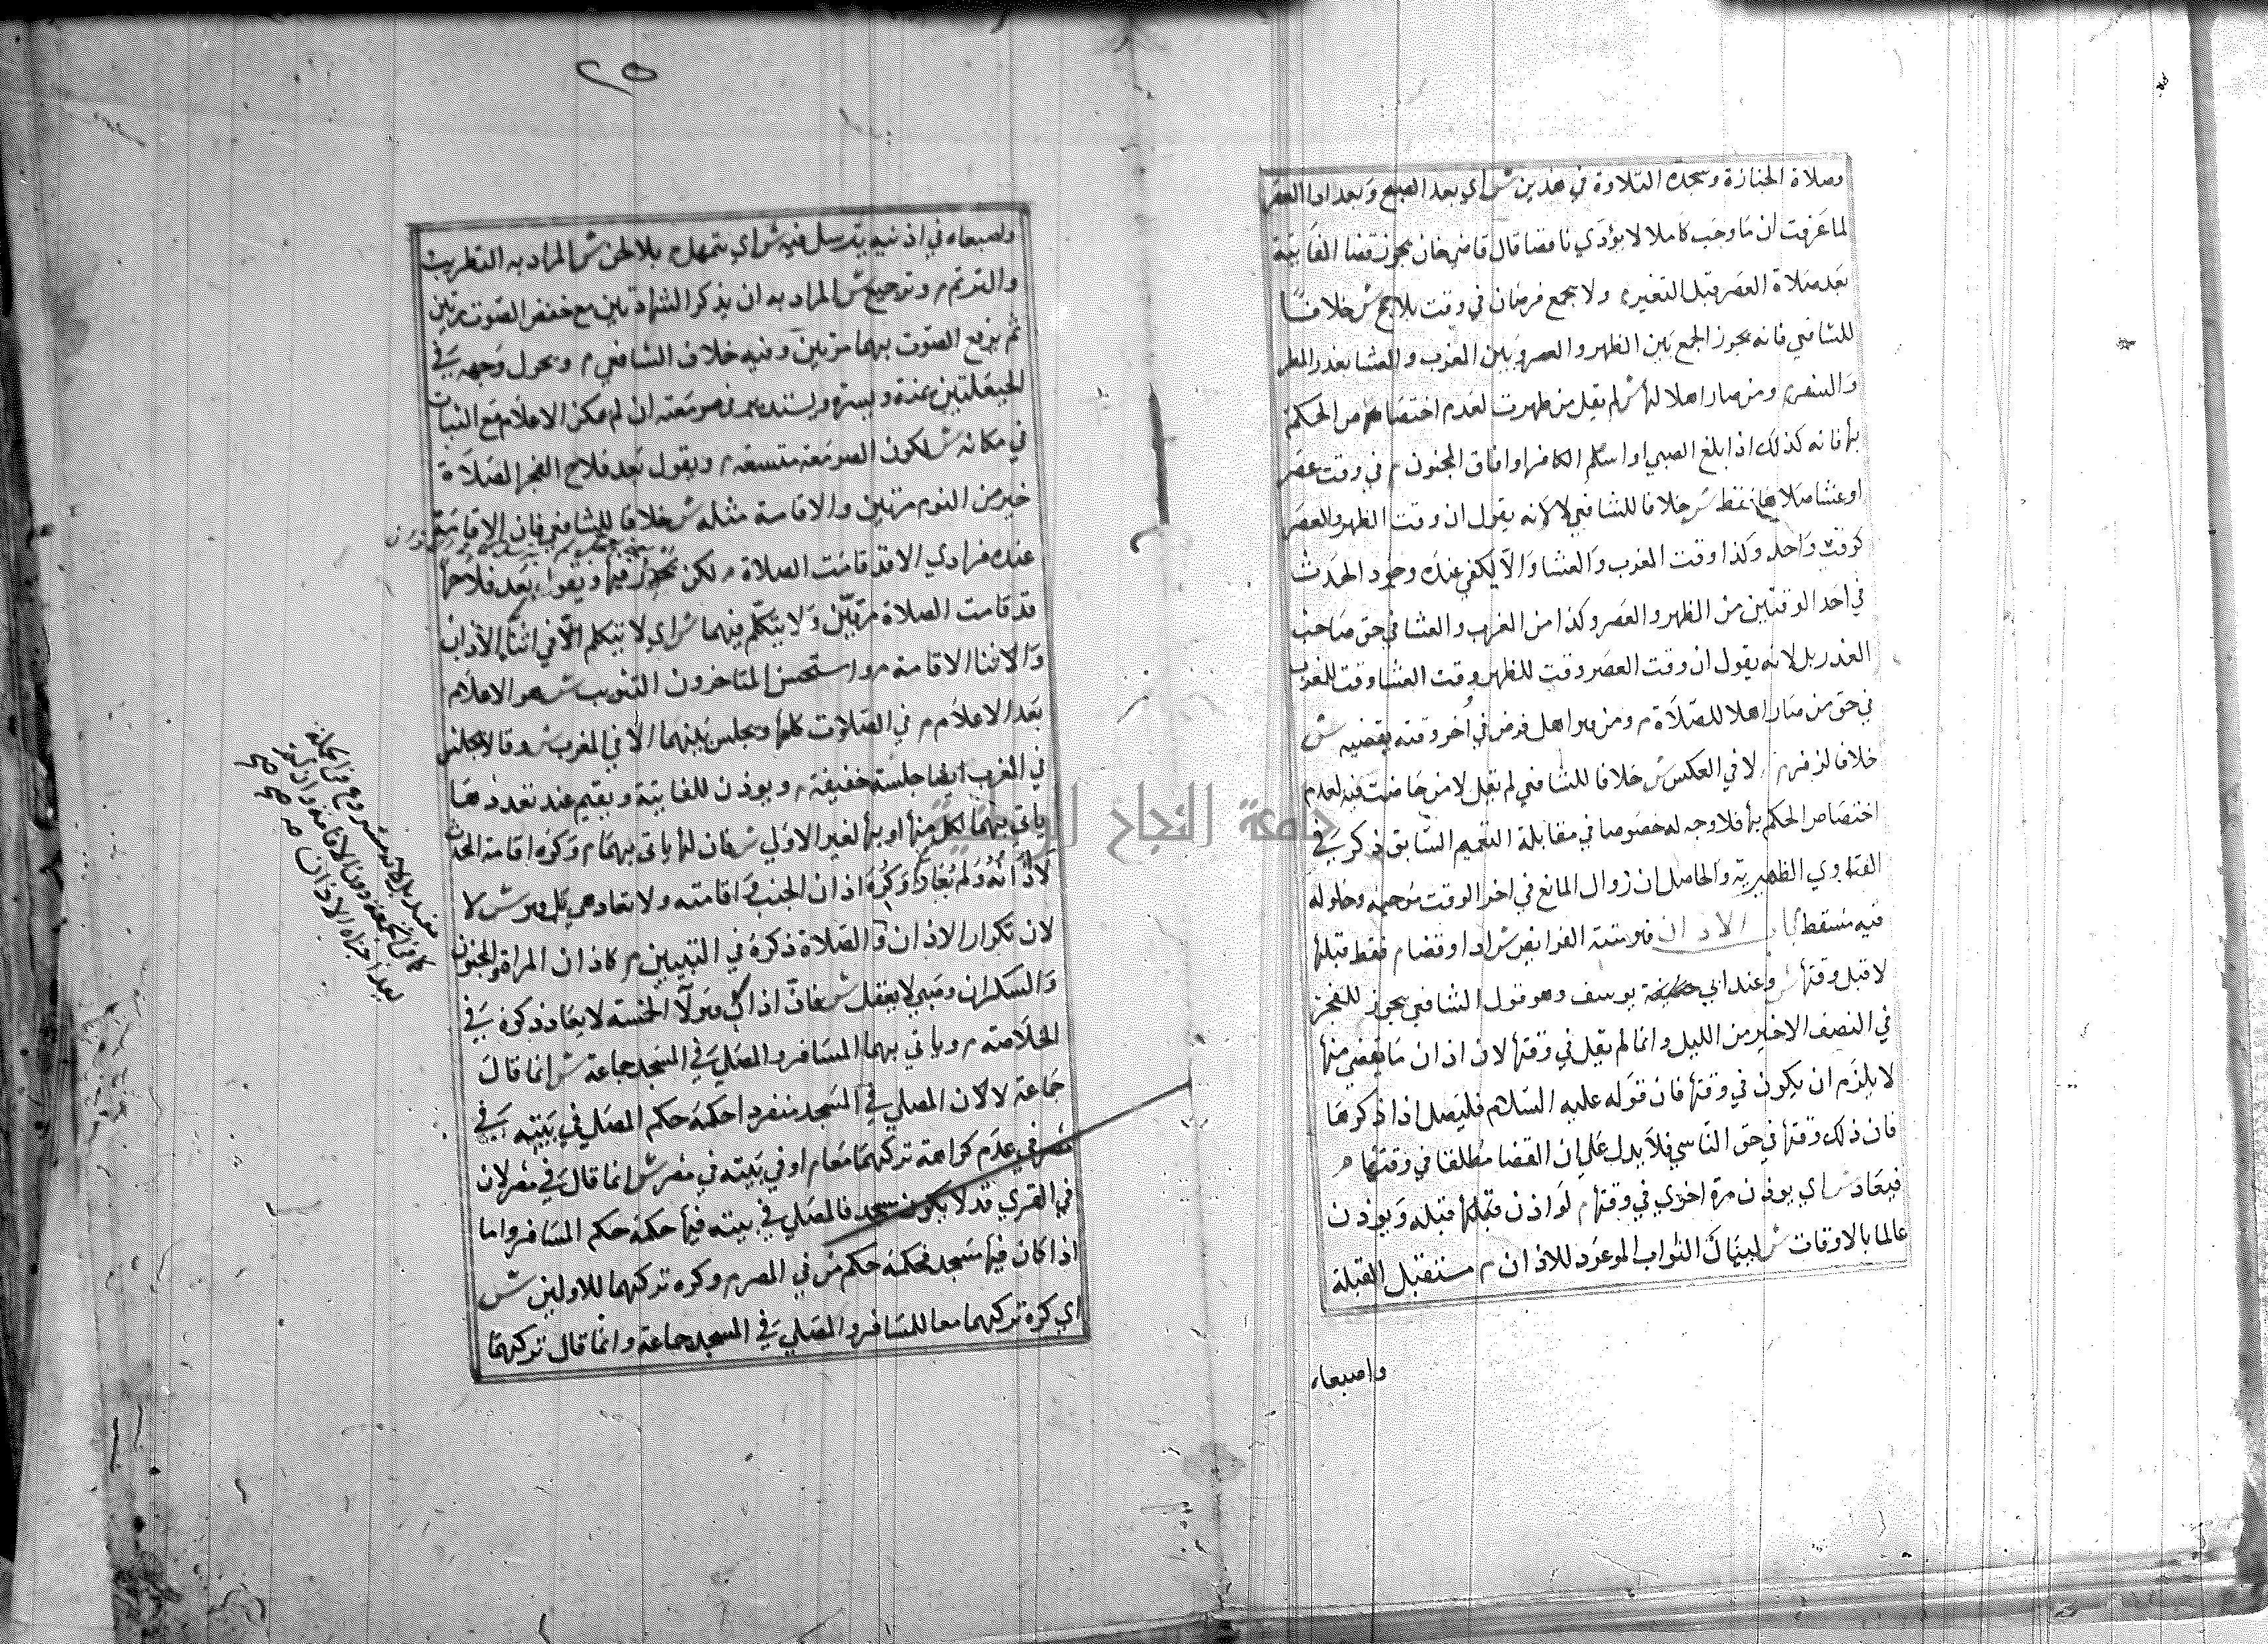 وصلاة الجنازة وسجدة التلاوة في هذين ش اي بعد الصبح وبعد اداء العصر
لما عرفت ان ما وجب كاملا لا يؤدي ناقصا قال قاضي خان يجوز قضا الفايتة
بعد صلاة العصر قبل التغير م ولا يجمع فرضان في وقت بلا حج ش خلافا
للشافعي فانه يجوز الجمع بين الظهر والعصر وبين المغرب والعشا بعذر المطر
والسفر م ومن صار اهلا لها ش لم يقل من طهرت لعدم اختصاص الحكم
بها فانه كذلك اذا بلغ الصبي او اسلم الكافر او افاق المجنون م في وقت عصر
او عشا صلاهما فقط ش خلافا للشافعي لا لانه يقول ان وقت الظهر والعصر
كوقت واحد وكذا وقت المغرب والعشا والا يكفي عنده وجود الحدث
في احد الوقتين من الظهر والعصر وكذا من المغرب والعشا في حق صاحب
العذر بل لانه يقول ان وقت العصر وقت للظهر ووقت العشا وقت للمغرب
في حق من صار اهلا للصلاة م ومن هو اهل فرض في اخر وقته يقضيه ش
خلافا لزفر م لا في العكس ش خلافا للشافعي لم يقل لا من حاضت فيه لعدم
اختصاص الحكم بها فلا وجه له خصوصا في مقابلة التعميم السابق ذكره في
الفتاوي الظهيرية والحاصل ان زوال المانع في اخر الوقت موجبه وحلوله
فيه مسقط باب الاذان هو سنة الفرايض ش اداء وقضا م فقط قبلها
لا قبل وقتها ش وعند ابي يوسف وهو قول الشافعي يجوز للفجر
في النصف الاخير من الليل وانما لم يقل في وقتها لان اذان ما يقضي منها
لا يلزم ان يكون في وقتها فان قوله عليه السلام فليصل اذا ذكرها
فان ذلك وقتها في حق الناسي فلا يدل علي ان القضا مطلقا في وقتها م
فيعاد ش اي يوذن مرة اخري في وقتها م لو اذن قبله ويوذن
عالما بالاوقات ش لينال الثواب الموعود للاذان م مستقبل القبلة
واصبعاه
٢٥
واصبعاه في اذنيه يترسل فيه ش اي يتمهل م بلا لحن ش المراد به التطريب
والترنم م وترجيع ش المراد به ان يذكر الشهادتين مع خفض الصوت مرتين
ثم يرفع الصوت بهما مرتين وفيه خلاف الشافعي م ويحول وجهه في
الحيعلتين يمنة ويسرة ويستدير في صومعته ان لم يمكن الاعلام مع الثبات
في مكانه ش لكون الصومعة متسعة م ويقول بعد فلاح الفجر الصلاة
خير من النوم مرتين والاقامة مثله ش خلافا للشافعي فان الاقامة
عنده فرادي الا قد قامت الصلاة م لكن يحدر فيها ويقول بعد فلاحها
قد قامت الصلاة مرتين ولا يتكلم فيهما ش اي لا يتكلم لا في اثناء الاذان
ولا في اثنا الاقامة م واستحسن المتاخرون التثويب ش هو الاعلام
بعد الاعلام م في الصلوت كلها ويجلس بينهما الا في المغرب ش وقالا يجلس
في المغرب ايضا جلسة خفيفة م ويوذن للفايتة ويقيم عند تعددها
ياتي بهما لكل منها او بها لغير الاولي ش فان لها ياتي بهما م وكره اقامة المحدث
لا اذانه ولم تعاد وكره اذان الجنب واقامته ولا تعاد هي بل هو ش لا
لان تكرار الاذان والصلاة ذكره في التبيين م كاذان المراة والمجنون
والسكران وصبي لا يعقل ش فان اذان هولا الخمسة لا يعاد ذكره في
الخلاصة م وياتي بهما المسافر والمصلي في المسجد جماعة ش انما قال
جماعة لا لان المصلي في المسجد منفردا حكمه حكم المصلي في بيته في
مصر في عدم كراهة تركهما معا م او في بيته في مصر ش انما قال في مصر لان
في القري قد لا يكون مسجد فالمصلي في بيته فيها حكمه حكم المسافر واما
اذا كان فيها مسجد فحكمه حكم من في المصر م وكره تركهما للاولين ش
اي كره تركهما معا للمسافر والمصلي في المسجد جماعة وانما قال تركهما
جامعة النجاح الوطنية